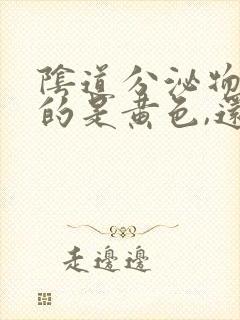 陰道分泌物
的是黃色,還
走邊邊